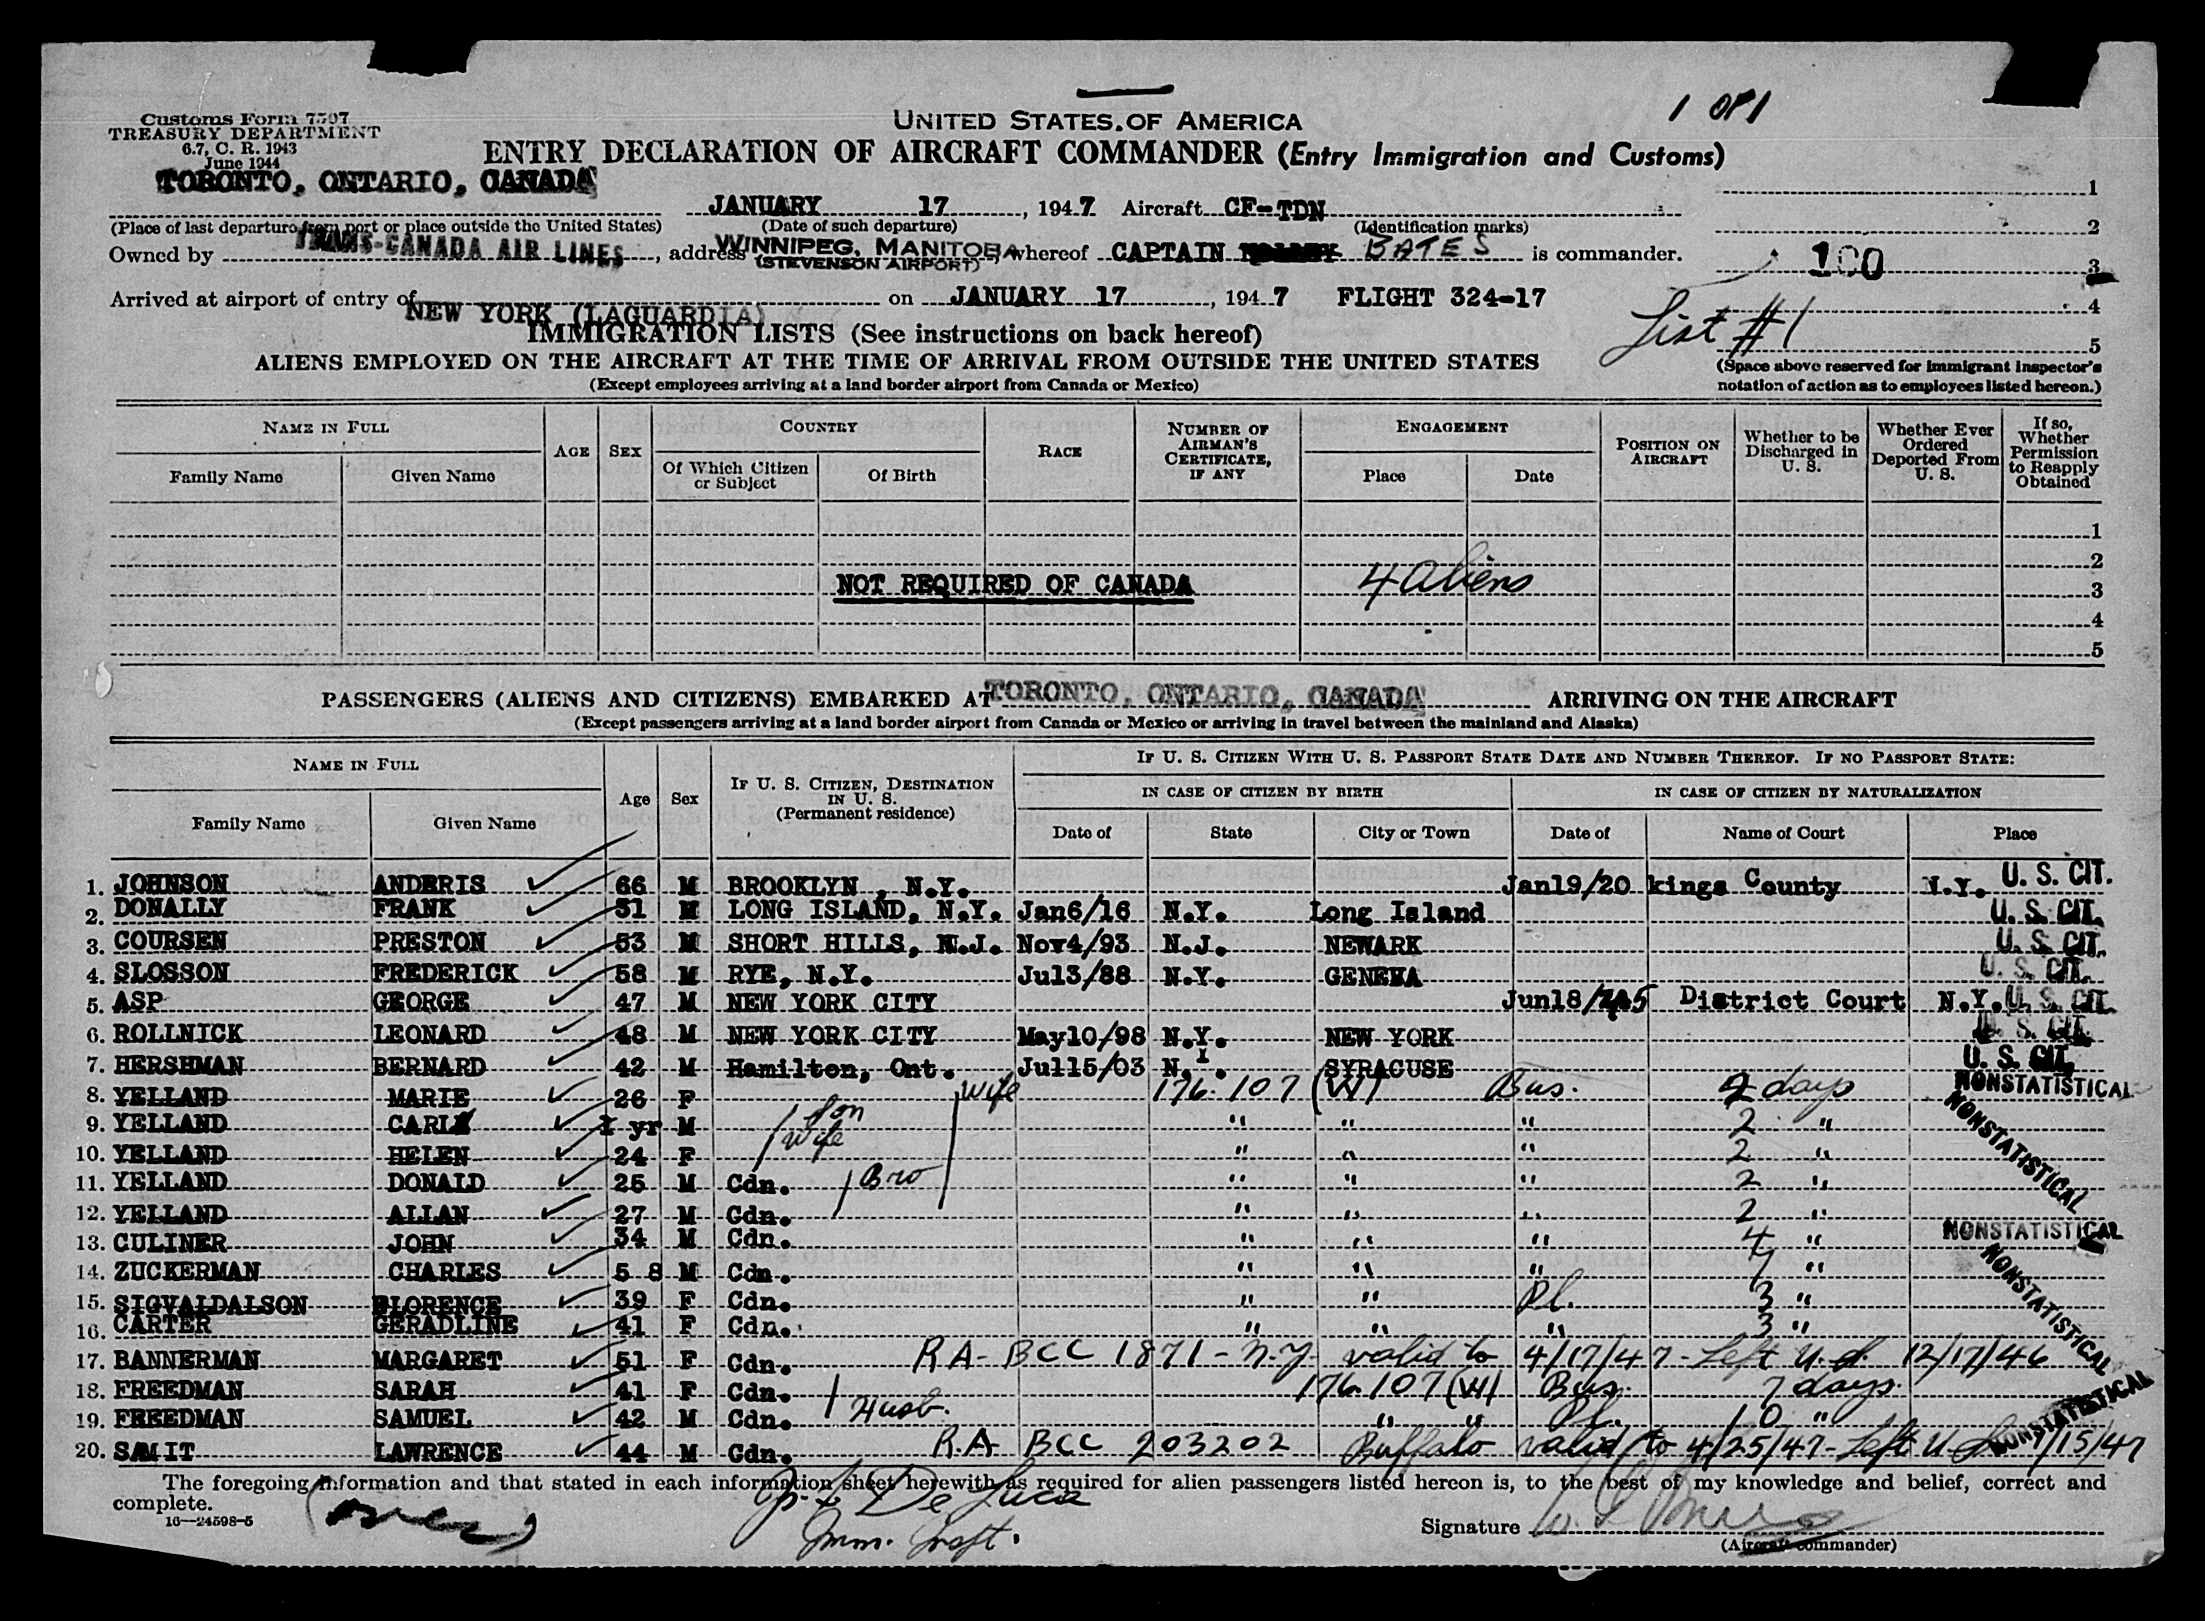 1 OF 1
Customs Form 7507
TREASURY DEPARTMENT
6.7, C. R. 1943
June 1944
UNITED STATES.OF AMERICA
ENTRY DECLARATION OF AIRCRAFT COMMANDER (Entry Immigration and Customs)
TORONTO, ONTARIO, CANADA
1
JANUARY 17, 1947 Aircraft CF-TDN
(Place of last departure from port or place outside the United States) (Date of such departure) (Identification marks)
2
Owned by TRANS-CANADA AIR LINES, address WINNIPEG, MANITOBA (STEVENSON AIRPORT), whereof CAPTAIN BATES is commander.
100
3
Arrived at airport of entry of NEW YORK (LAGUARDIA) on JANUARY 17, 1947 FLIGHT 324-17
4
List #1
IMMIGRATION LISTS (See instructions on back hereof)
5
ALIENS EMPLOYED ON THE AIRCRAFT AT THE TIME OF ARRIVAL FROM OUTSIDE THE UNITED STATES
(Except employees arriving at a land border airport from Canada or Mexico)
(Space above reserved for immigrant inspector's
notation of action as to employees listed hereon.)
NAME IN FULL
Family Name Given Name
AGE SEX
COUNTRY
Of Which Citizen or Subject
Of Birth
RACE
NUMBER OF AIRMAN'S CERTIFICATE, IF ANY
ENGAGEMENT
Place Date
POSITION ON AIRCRAFT
Whether to be Discharged in U. S.
Whether Ever Ordered Deported From U. S.
If so, Whether Permission to Reapply Obtained
1
2
NOT REQUIRED OF CANADA 4 aliens
3
4
5
PASSENGERS (ALIENS AND CITIZENS) EMBARKED AT TORONTO, ONTARIO, CANADA ARRIVING ON THE AIRCRAFT
(Except passengers arriving at a land border airport from Canada or Mexico or arriving in travel between the mainland and Alaska)
NAME IN FULL
Family Name Given Name
Age Sex
IF U. S. CITIZEN, DESTINATION IN U. S.
(Permanent residence)
IF U. S. CITIZEN WITH U. S. PASSPORT STATE DATE AND NUMBER THEREOF. IF NO PASSPORT STATE:
IN CASE OF CITIZEN BY BIRTH IN CASE OF CITIZEN BY NATURALIZATION
Date of State City or Town Date of Name of Court Place
1. JOHNSON ANDERIS 66 M BROOKLYN , N.Y. Jan19/20 kings County N.Y. U. S. CIT.
2. DONALLY FRANK 31 M LONG ISLAND, N.Y. Jan6/16 N.Y. Long Island U. S. CIT.
3. COURSEN PRESTON 53 M SHORT HILLS, N.J. Nov4/93 N.J. NEWARK U. S. CIT.
4. SLOSSON FREDERICK 58 M RYE, N.Y. Jul3/88 N.Y. GENEVA U. S. CIT.
5. ASP GEORGE 47 M NEW YORK CITY Jun18/45 District Court N.Y. U. S. CIT.
6. ROLLNICK LEONARD 48 M NEW YORK CITY May10/98 N.Y. NEW YORK U. S. CIT.
7. HERSHMAN BERNARD 42 M Hamilton, Ont. Jul15/03 N.Y. SYRACUSE U. S. CIT.
8. YELLAND MARIE 26 F wife 176.107 (W) Bus. 2 days NONSTATISTICAL
9. YELLAND CARL 1 yr M son " " " 2 "
10. YELLAND HELEN 24 F wife " " " 2 " NONSTATISTICAL
11. YELLAND DONALD 25 M Cdn. Bro " " " 2 "
12. YELLAND ALLAN 27 M Cdn. " " " 2 "
13. CULINER JOHN 34 M Cdn. " " " 4 " NONSTATISTICAL
14. ZUCKERMAN CHARLES 5 8 M Cdn. " " " 7 "
15. SIGVALDALSON FLORENCE 39 F Cdn. " " Pl. 3 " NONSTATISTICAL
16. CARTER GERADLINE 41 F Cdn. " " " 3 "
17. BANNERMAN MARGARET 51 F Cdn. RA- BCC 1871 - N.Y. valid to 4/17/47 - Left U.S. 12/17/46
18. FREEDMAN SARAH 41 F Cdn. 176.107 (W) Bus. 7 days.
19. FREEDMAN SAMUEL 42 M Cdn. Husb. " " Pl. 10 " NONSTATISTICAL
20. SAMIT LAWRENCE 44 M Cdn. R.A- BCC 203202 Buffalo valid to 4/25/47 - Left U.S. 1/15/47
The foregoing information and that stated in each information sheet herewith as required for alien passengers listed hereon is, to the best of my knowledge and belief, correct and
complete.
16—24598-5
De Luca
Imm. Inspt.
Signature
(Aircraft commander)